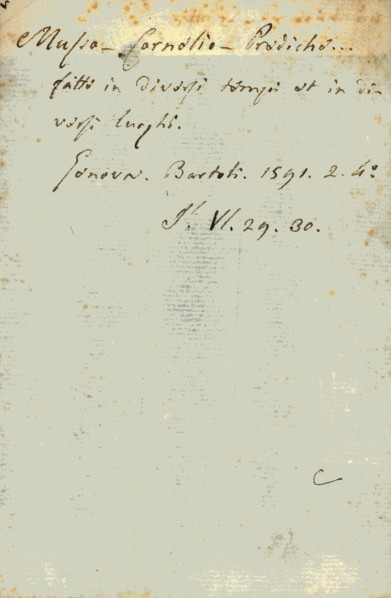 Musso - Cornelio - Prediche...
fatte in diversi tempi et in di-
versi luoghi.
Genova. Bartoli. 1591. 2. 4.º
VI. 29. 30.
C